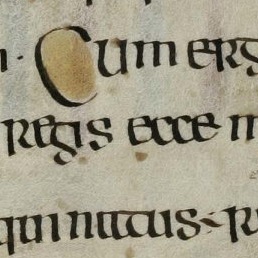 · Cum erg
regis ecce m
qui natus ~ r